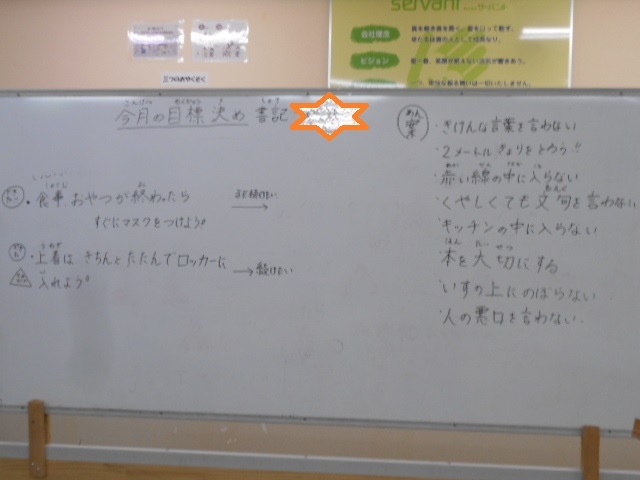 servani
会社理念
ビジョン
三つのおやくそく
今月の目標決め 書記
食事おやつが終わったら
すぐにマスクをつけよう!
まだ続けたい
上着は きちんとたたんでロッカーに
入れよう!
続けたい
案
・きけんな言葉を言わない
・2メートルきょりをとろう!!
・赤い線の中に入らない
・くやしくても文句を言わない
・キッチンの中に入らない
・本を大切にする
・いすの上にのぼらない
・人の悪口を言わない